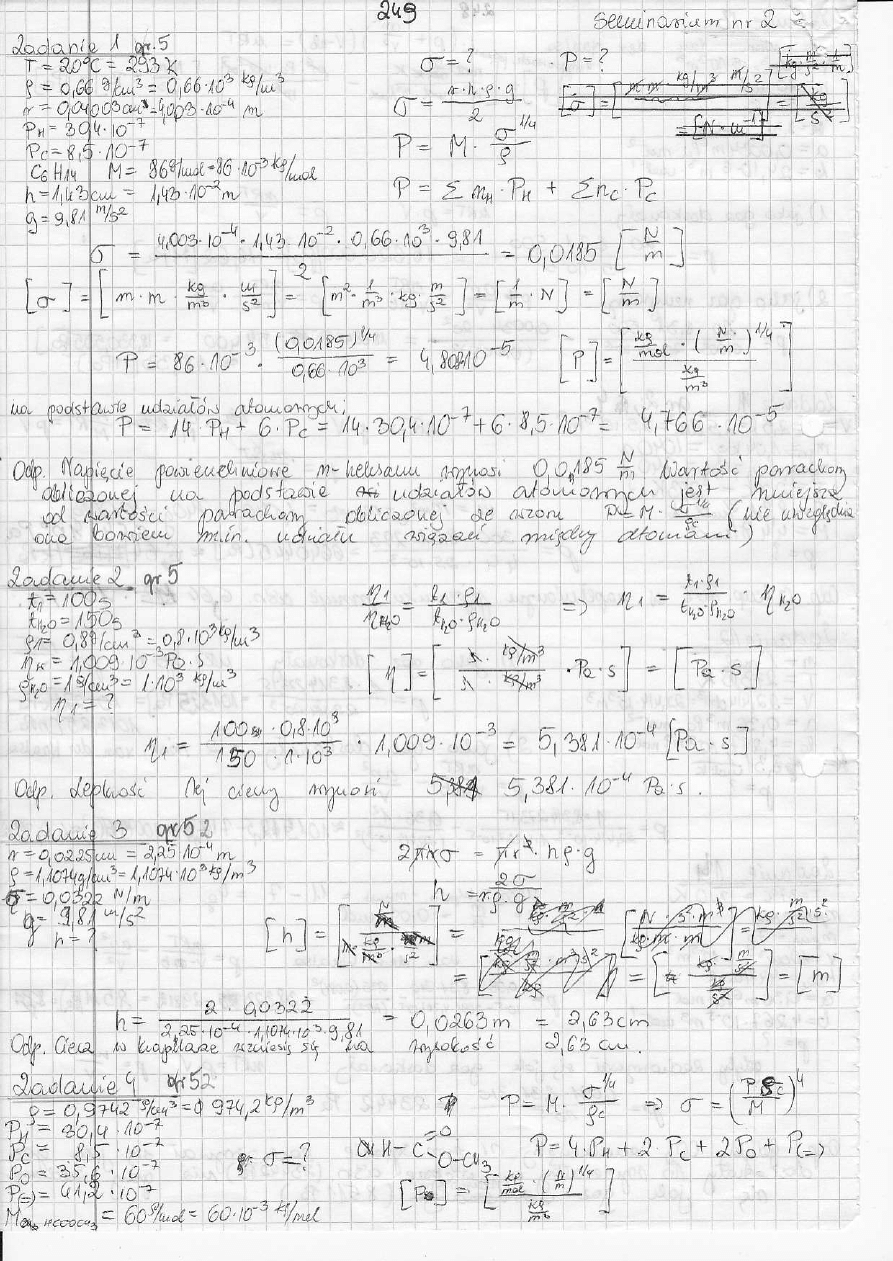 249
Seminarium nr 2
Zadanie 1 gr. 5
T = 20°C = 293 K
ρ = 0,66 g/cm³ = 0,66·10³ kg/m³
r = 0,04003cm = 4,003·10⁻⁴ m
P_H = 30,4·10⁻⁷
P_C = 8,5·10⁻⁷
C₆H₁₄ M = 86g/mol = 86·10⁻³ kg/mol
h = 1,43cm = 1,43·10⁻² m
g = 9,81 m/s²
σ = ? P = ?
σ = r·h·ρ·g / 2
P = M · σ^1/4 / ρ
P = Σn_H · P_H + Σn_C · P_C
σ = 4,003·10⁻⁴ · 1,43·10⁻² · 0,66·10³ · 9,81 / 2 = 0,0185 [N/m]
[σ] = [m·m · kg/m³ · m/s²] = [m² · 1/m³ · kg · m/s²] = [1/m · N] = [N/m]
P = 86·10⁻³ · (0,0185)^1/4 / 0,66·10³ = 4,808·10⁻⁵ [P] = [kg/mol · (N/m)^1/4 / kg/m³]
na podstawie udziałów atomowych:
P = 14·P_H + 6·P_C = 14·30,4·10⁻⁷ + 6·8,5·10⁻⁷ = 4,766·10⁻⁵
Odp. Napięcie powierzchniowe n-heksanu wynosi 0,0185 N/m Wartość parachory
obliczonej na podstawie udziałów atomowych jest mniejsza
od wartości parachory obliczonej ze wzoru P = M · σ^1/4 / ρc (nie uwzględnia
ona bowiem m.in. udziału wiązań między atomami)
Zadanie 2 gr 5
t₁ = 100s
t_H₂O = 150s
ρ₁ = 0,8g/cm³ = 0,8·10³ kg/m³
η_H = 1,009·10⁻³ Pa·s
ρ_H₂O = 1g/cm³ = 1·10³ kg/m³
η₁ = ?
η₁/η_H₂O = t₁·ρ₁ / t_H₂O·ρ_H₂O => η₁ = t₁·ρ₁ / t_H₂O·ρ_H₂O η_H₂O
[η] = [s · kg/m³ / s · kg/m³ · Pa·s] = [Pa·s]
η₁ = 100 · 0,8·10³ / 150 · 1·10³ · 1,009·10⁻³ = 5,381·10⁻⁴ [Pa·s]
Odp. Lepkość tej cieczy wynosi 5,381·10⁻⁴ Pa·s.
Zadanie 3 gr 52
r = 0,0225cm = 2,25·10⁻⁴ m
ρ = 1,1074g/cm³ = 1,1074·10³ kg/m³
σ = 0,0322 N/m
g = 9,81 m/s²
h = ?
2πrσ = πr²·hρ·g
h = 2σ / rρ·g
[h] = [N/m / m · kg/m³ · m/s²] = [m]
h = 2 · 0,0322 / 2,25·10⁻⁴ · 1,1074·10³ · 9,81 = 0,0263m = 2,63cm
Odp. Ciecz w kapilarze wzniesie się na wysokość 2,63 cm.
Zadanie 4 gr 52
ρ = 0,9742 g/cm³ = 974,2 kg/m³
P_H = 30,4·10⁻⁷
P_C = 8,5·10⁻⁷
P_O = 35,6·10⁻⁷
P(=) = 41,2·10⁻⁷
M HCOOCH₃ = 60g/mol = 60·10⁻³ kg/mol
σ = ?
P = M · σ^1/4 / ρc => σ = (P ρc / M)⁴
H-C =O O-CH₃ P = 4·P_H + 2P_C + 2P_O + P(=)
[P] = [kg/mol · (N/m)^1/4 / kg/m³]